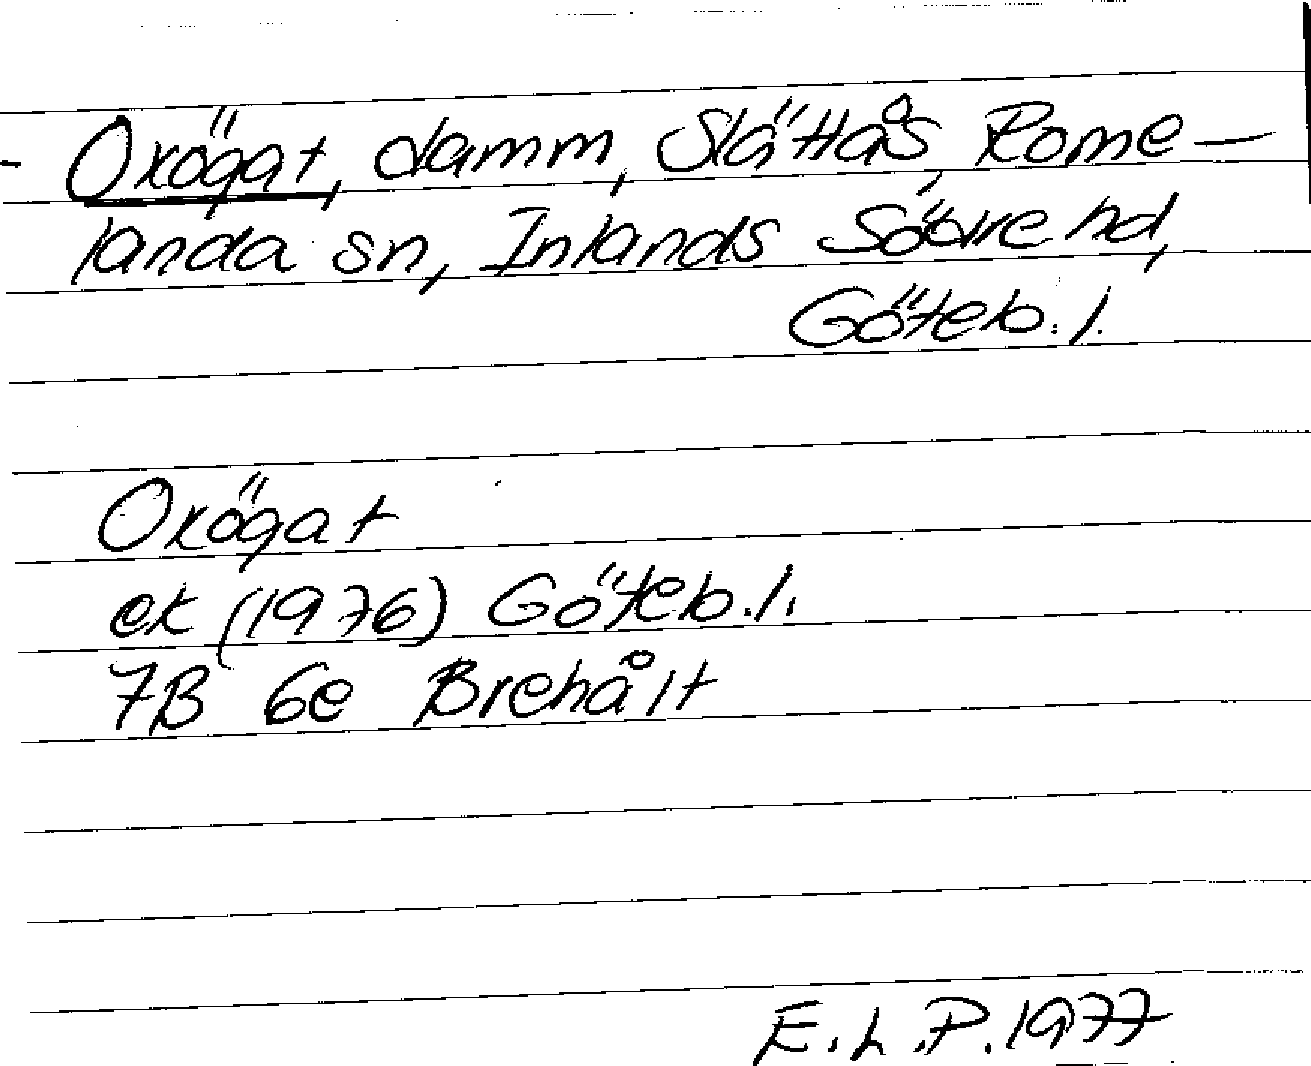 - Oxögat, damm, Slättås, Rome-
landa sn, Inlands Södre hd,
Göteb. l.
Oxögat
ek (1976) Göteb. l.
7B 6e Brehålt
E.L.P. 1977